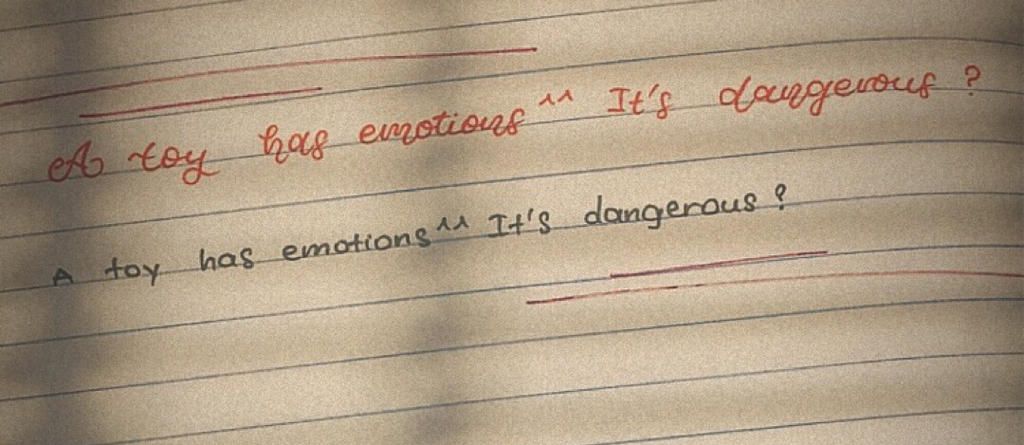 A toy has emotions^^ It's dangerous?
A toy has emotions^^ It's dangerous?